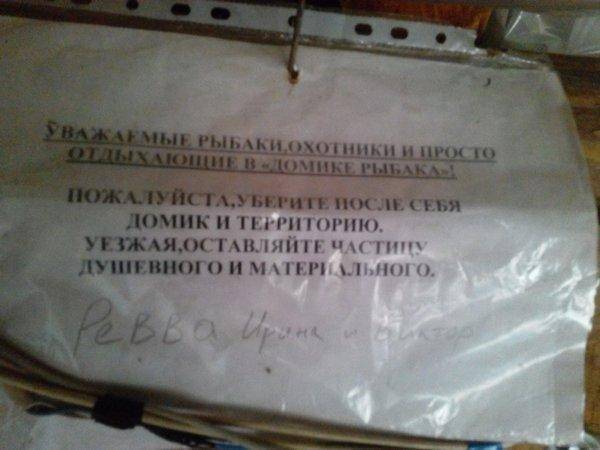 УВАЖАЕМЫЕ РЫБАКИ,ОХОТНИКИ И ПРОСТО
ОТДЫХАЮЩИЕ В «ДОМИКЕ РЫБАКА»!
ПОЖАЛУЙСТА,УБЕРИТЕ ПОСЛЕ СЕБЯ
ДОМИК И ТЕРРИТОРИЮ.
УЕЗЖАЯ,ОСТАВЛЯЙТЕ ЧАСТИЦУ
ДУШЕВНОГО И МАТЕРИАЛЬНОГО.
Ревва Ирина и Виктор